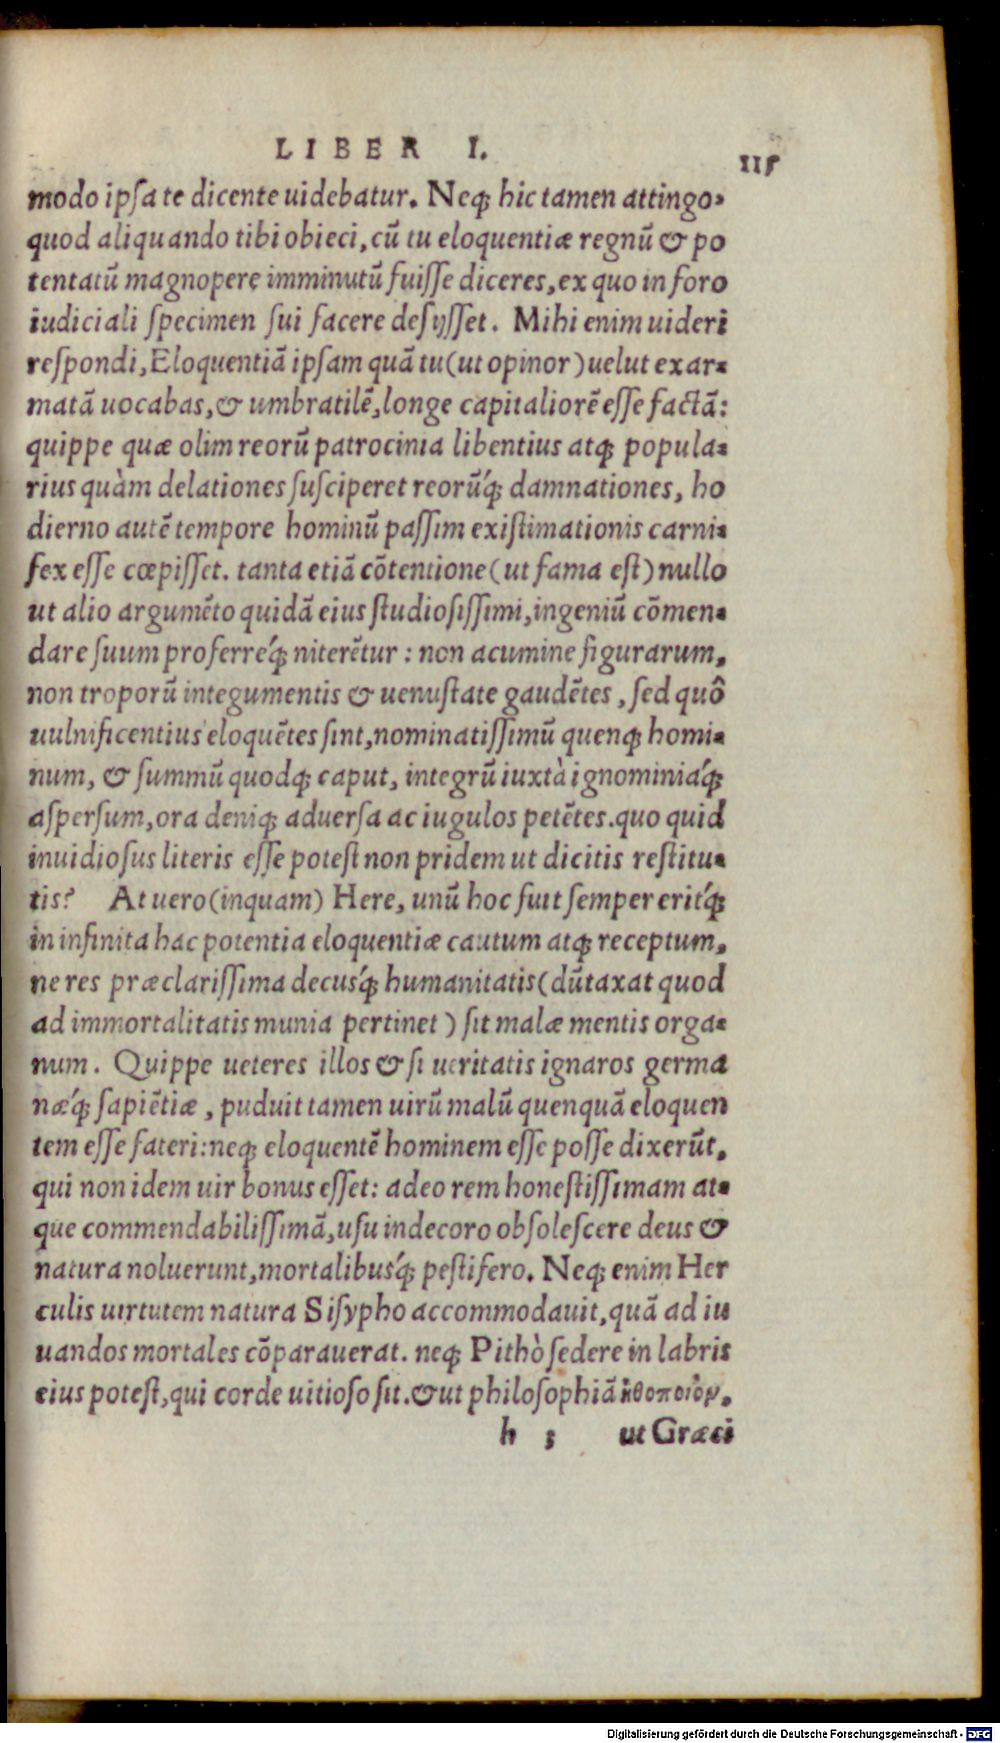 LIBER I. 115
modo ipsa te dicente uidebatur. Neq; hic tamen attingo,
quod aliquando tibi obieci, cū tu eloquentiæ regnū & po
tentatū magnopere imminutū fuisse diceres, ex quo in foro
iudiciali specimen sui facere desijsset. Mihi enim uideri
respondi, Eloquentiā ipsam quā tu (ut opinor) uelut exar-
matā uocabas, & umbratilē, longe capitaliorē esse factā:
quippe quæ olim reorū patrocinia libentius atq; popula-
rius quàm delationes susciperet reorūq́; damnationes, ho
dierno autē tempore hominū passim existimationis carni-
fex esse cœpisset. tanta etiā cōtentione (ut fama est) nullo
ut alio argumēto quidā eius studiosissimi, ingeniū cōmen-
dare suum proferreq́; niterētur: non acumine figurarum,
non troporū integumentis & uenustate gaudētes, sed quô
uulnificentius eloquētes sint, nominatissimū quenq; homi-
num, & summū quodq; caput, integrū iuxtà ignominiaq́;
aspersum, ora deniq; aduersa ac iugulos petētes. quo quid
inuidiosus literis esse potest non pridem ut dicitis restitu-
tis? At uero (inquam) Here, unū hoc fuit semper eritq́;
in infinita hac potentia eloquentiæ cautum atq; receptum,
ne res præclarissima decusq́; humanitatis (dūtaxat quod
ad immortalitatis munia pertinet) sit malæ mentis orga-
num. Quippe ueteres illos & si ueritatis ignaros germa
næq́; sapiētiæ, puduit tamen uirū malū quenquā eloquen
tem esse fateri: neq; eloquentē hominem esse posse dixerūt,
qui non idem uir bonus esset: adeo rem honestissimam at-
que commendabilissimā, usu indecoro obsolescere deus &
natura noluerunt, mortalibusq́; pestifero. Neq; enim Her
culis uirtutem natura Sisypho accommodauit, quā ad iu
uandos mortales cōparauerat. neq; Pithò sedere in labris
eius potest, qui corde uitioso sit. & ut philosophiā ἠθοποιὸν,
h 5 ut Græci
Digitalisierung gefördert durch die Deutsche Forschungsgemeinschaft - DFG